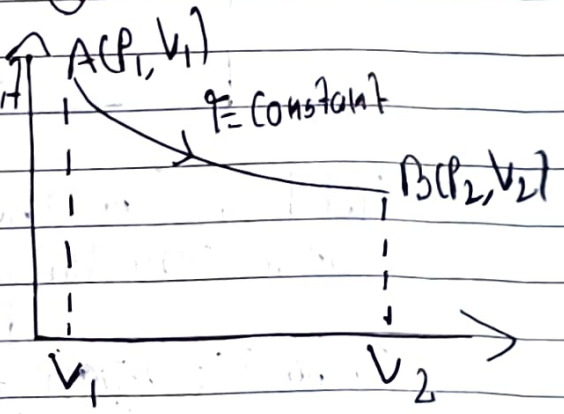 A(P₁, V₁)
T = Constant
B(P₂, V₂)
V₁
V₂